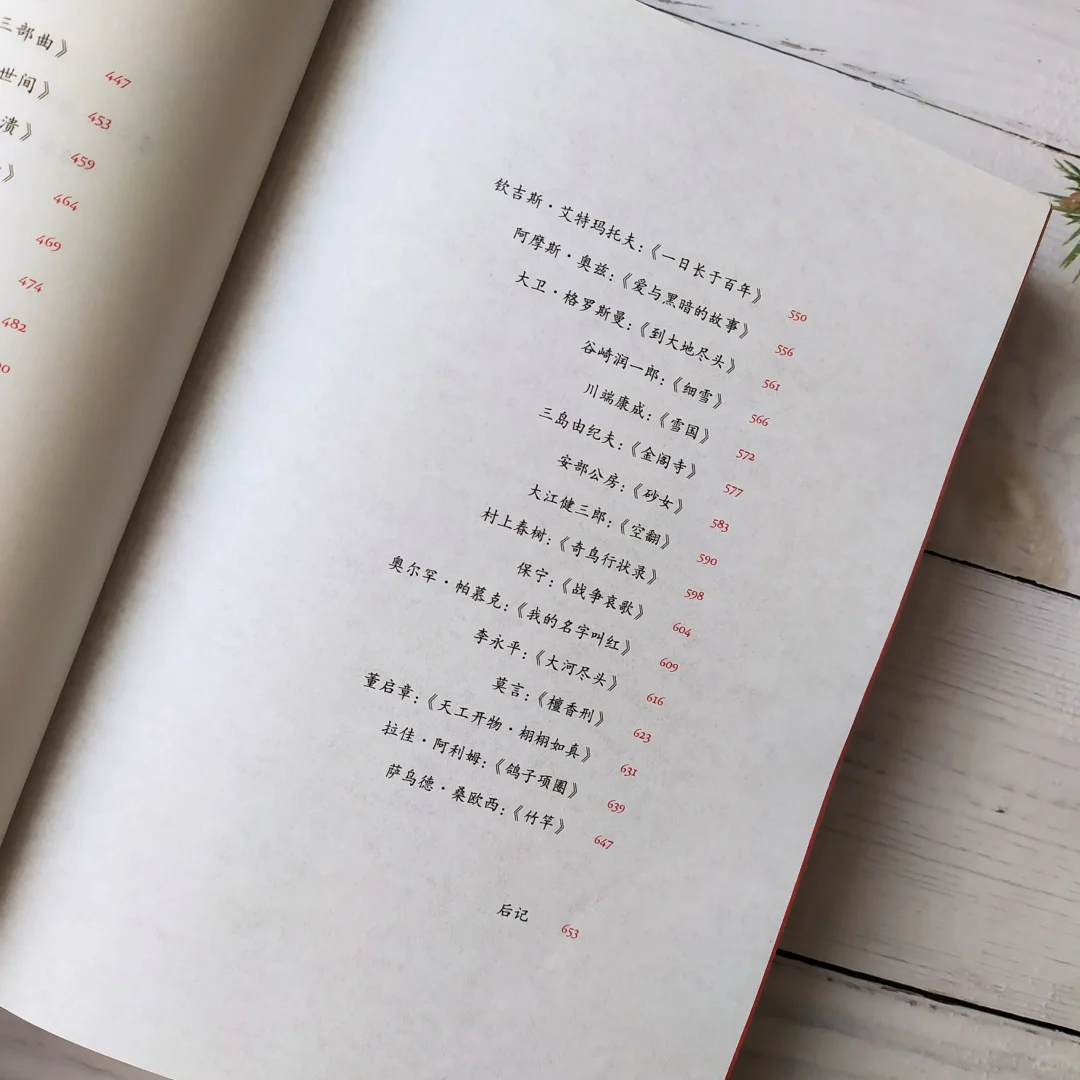 三部曲》 447
世间》 453
溃》 459
》 464
469
474
482
钦吉斯·艾特玛托夫：《一日长于百年》 550
阿摩斯·奥兹：《爱与黑暗的故事》 556
大卫·格罗斯曼：《到大地尽头》 561
谷崎润一郎：《细雪》 566
川端康成：《雪国》 572
三岛由纪夫：《金阁寺》 577
安部公房：《砂女》 583
大江健三郎：《空翻》 590
村上春树：《奇鸟行状录》 598
保宁：《战争哀歌》 604
奥尔罕·帕慕克：《我的名字叫红》 609
李永平：《大河尽头》 616
莫言：《檀香刑》 623
董启章：《天工开物·栩栩如真》 631
拉佳·阿利姆：《鸽子项圈》 639
萨乌德·桑欧西：《竹竿》 647
后记 653